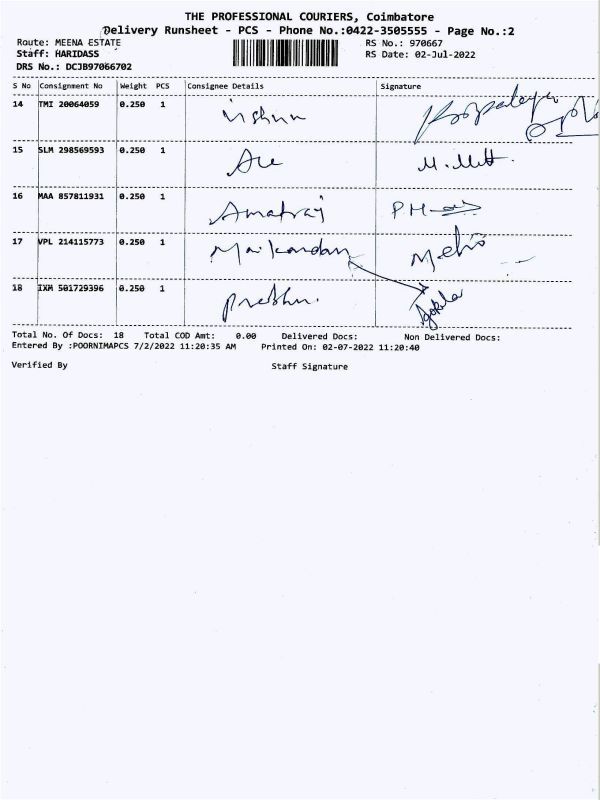 THE PROFESSIONAL COURIERS, Coimbatore
Delivery Runsheet - PCS - Phone No.:0422-3505555 - Page No.:2
Route: MEENA ESTATE
RS No.: 970667
Staff: HARIDASS
RS Date: 02-Jul-2022
DRS No.: DCJB97066702
S No Consignment No Weight PCS Consignee Details Signature
14 TMI 20064059 0.250 1
15 SLM 298569593 0.250 1
16 MAA 857811931 0.250 1
17 VPL 214115773 0.250 1 Manikandan
18 IXM 501729396 0.250 1 Prabhu. Gokila
Total No. Of Docs: 18 Total COD Amt: 0.00 Delivered Docs: Non Delivered Docs:
Entered By :POORNIMAPCS 7/2/2022 11:20:35 AM Printed On: 02-07-2022 11:20:40
Verified By Staff Signature